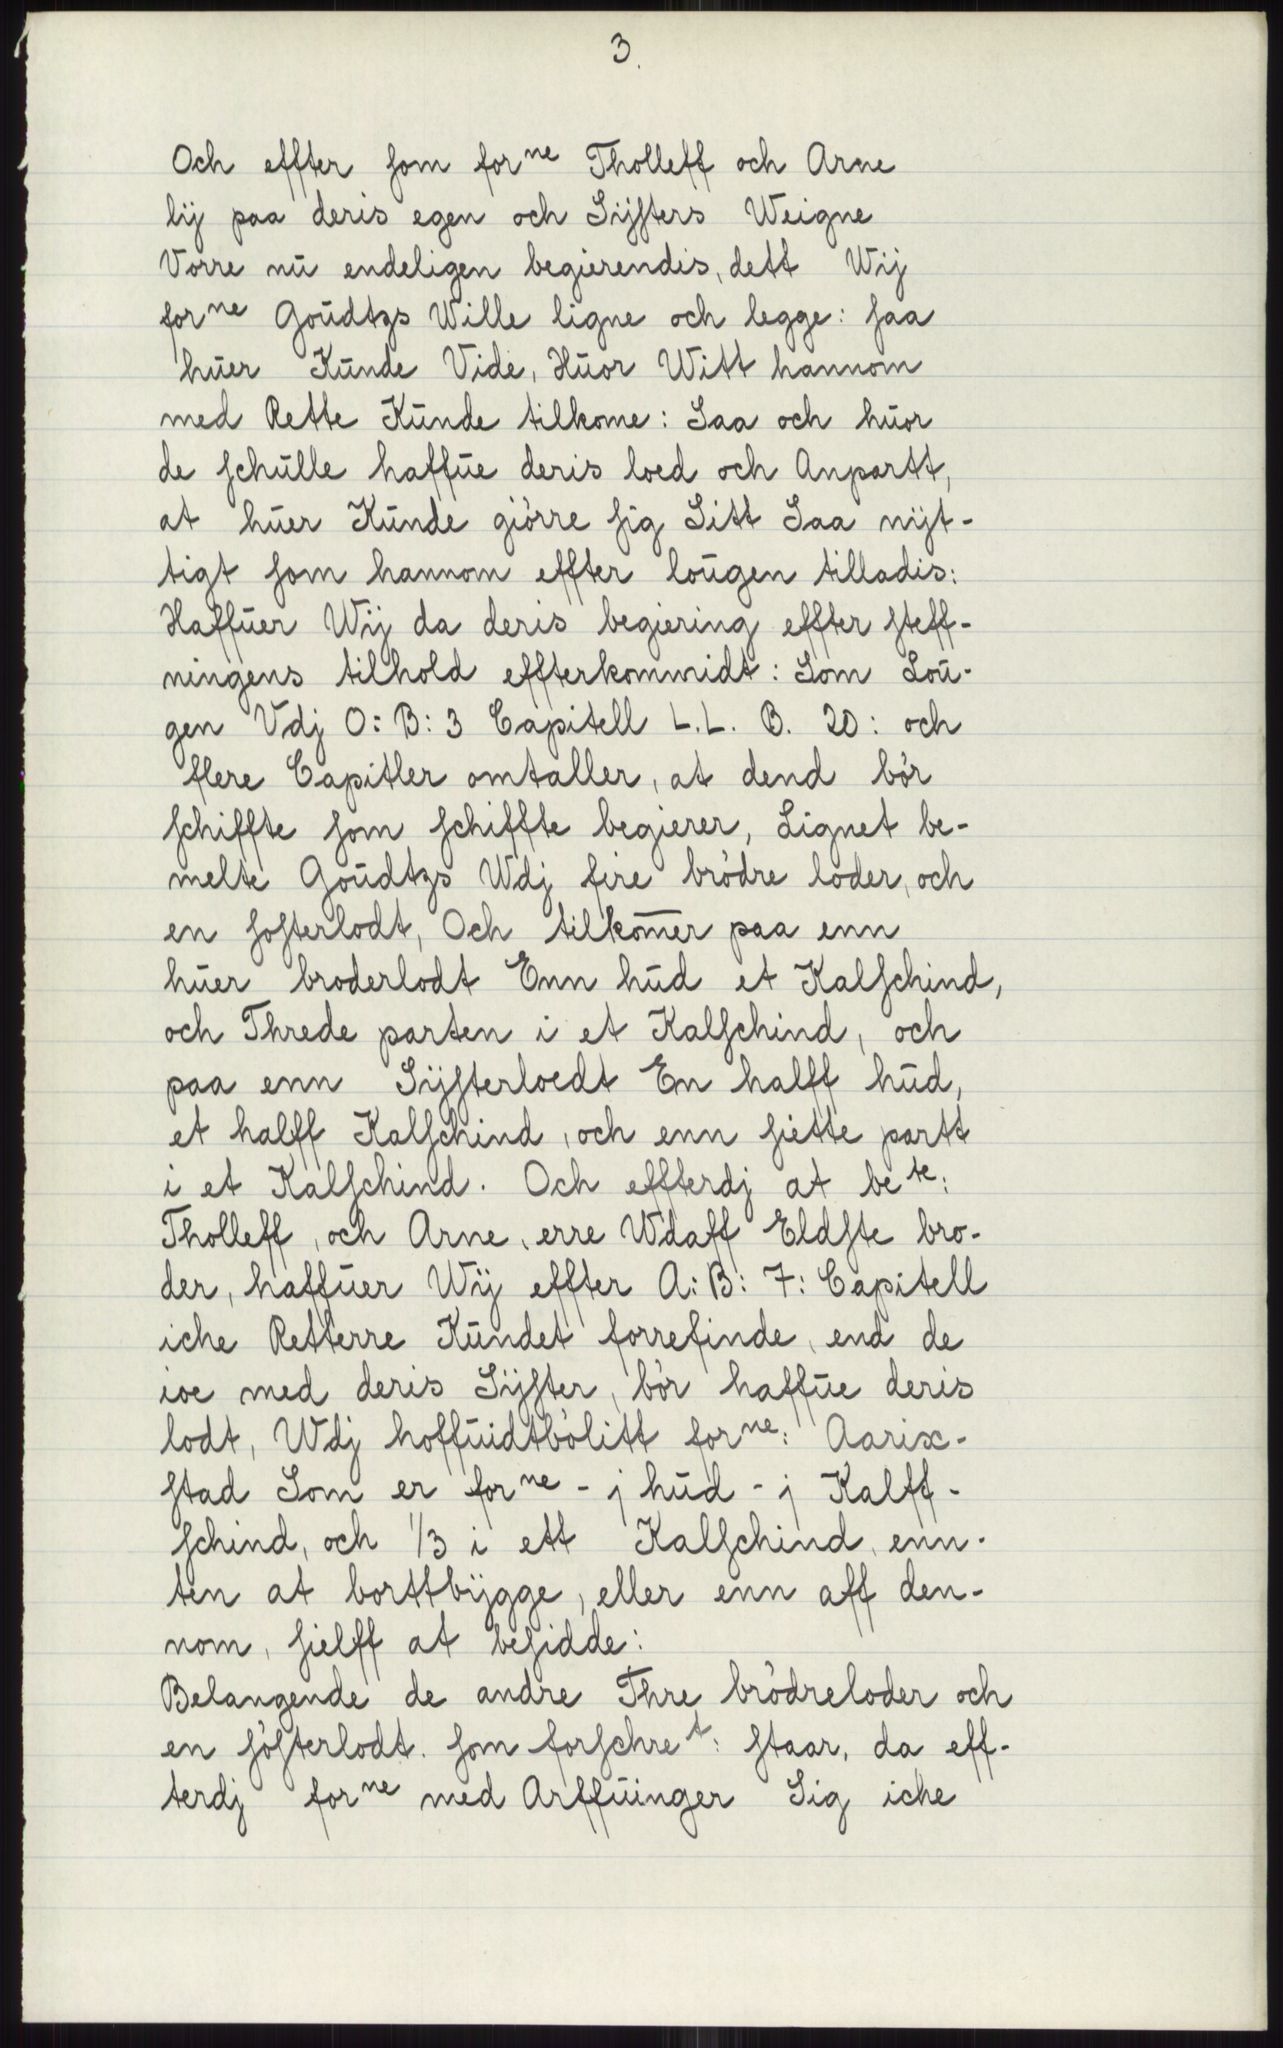 3.
Och effter som for^ne Tholleff och Arne
lij paa deris egen och Sÿsters Weigne
Vorre nū endeligen begierendis, dett Wij
for^ne Goūdtzs Wille ligne och legge: saa
hūer Kūnde Vide, Hūor Witt hannom
med Rette Kūnde tilkome: Saa och hūor
de schūlle haffūe deris loed och Anpartt,
at hūer Kūnde giörre sig Sitt Saa nÿt-
tigt som hannom effter loūgen tilladis:
Haffūer Wij da deris begiering effter steff-
ningens tilhold effterkommidt: Som Loū-
gen Vdj O: B: 3 Capitell L.L. B. 20: och
flere Capitler omtaller, at dend bör
schiffte som schiffte begierer, Lignet be-
melte Goūdtzs Wdj fire brödre loder, och
en sosterlodt, Och tilkom̄er paa enn
hūer broderlodt Enn hūd et Kalschind,
och Threde parten i et Kalschind, och
paa enn Sÿsterloedt En halff hūd,
et halff Kalschind, och enn siette partt
i et Kalschind. Och effterdj at be^te:
Tholleff, och Arne, erre Wdaff Eldste bro-
der, haffūer Wÿ effter A: B: 7: Capitell
iche Retterre Kūndet forrefinde, end de
ioe med deris Sÿster, bör haffūe deris
lodt, Wdj hoffūidtbölitt for^ne: Aarix-
stad Som er for^ne - j hūd - j Kalff-
schind, och 1/3 i ett Kalschind, enn-
ten at borttbÿgge, eller enn aff den-
nom, sielff at besidde:
Belangende de andre Thre brödreloder och
en sösterlodt. som forschre^t: staar, da eff-
terdj for^ne med Arffūinger Sig iche